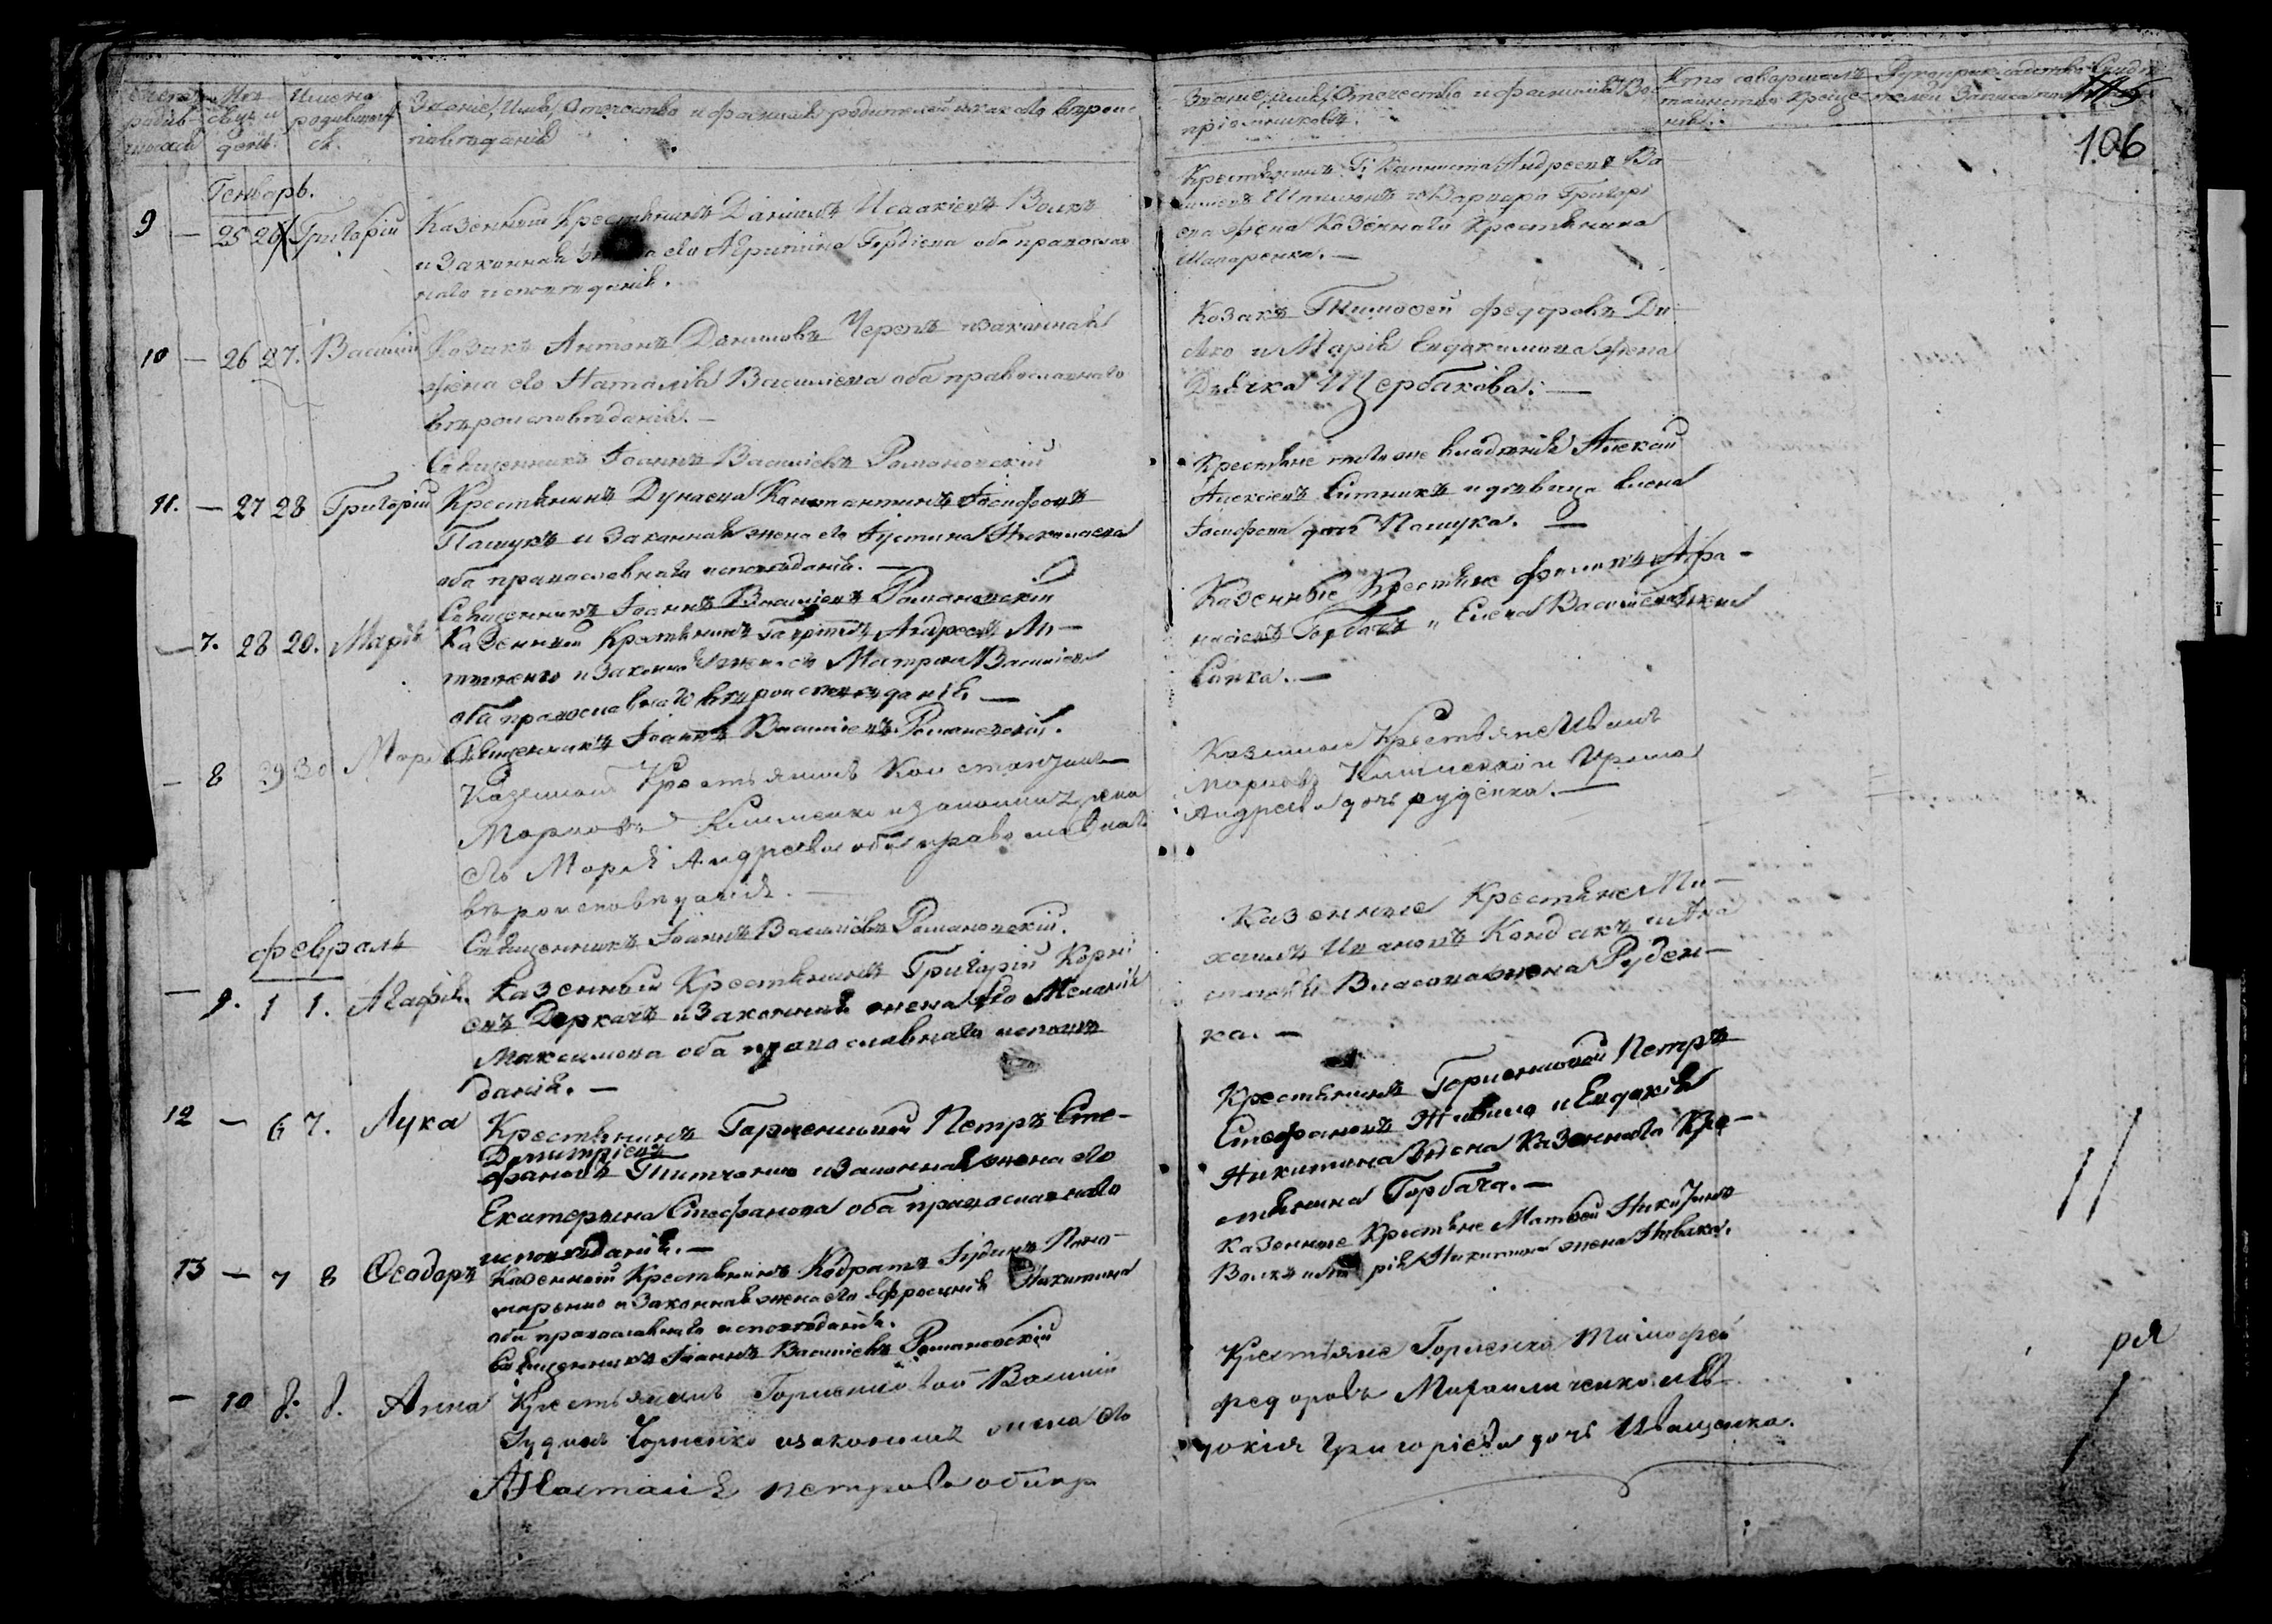 Званіе, Имя, Отечество и фамилія родителей и какого вѣроис-
повѣданія
Имена
родившихся
Званіе, имя, Отечество и фамилія Во-
пріемниковъ.
Кто совершалъ
таинство Креще-
нія.
106
Генварь.
9 — 25 26 Григорій Казенный Крестьянинъ Даніилъ Исаакіевъ Волкъ
и законная жена его Агрипина Гордіева оба православ
наго исповѣданія.
Крестьянинъ Г. Капниста Андреевъ Ва
и Варвара Григорі
ева жена Казеннаго Крестьянина
Шапаренка. —
10 — 26 27. Василій Козакъ Антонъ Даниловъ Черепъ и законная
жена его Наталія Василіева оба православнаго
вѣроисповѣданія. —
Священникъ Іоаннъ Василіевъ Романовскій
Козакъ Тимофей Федоровъ Ди-
и Марія Евдокимова жена
Дьячка Щербакова. —
11. — 27 28 Григорій Крестьянинъ Дунаева Константинъ Іосифовъ
Пашукъ и законная жена его Іустина Николаева
оба православнаго исповѣданія. —
Священникъ Іоаннъ Василіевъ Романовскій
Крестьяне того же владѣнія Алексѣй
Алексіевъ Ситникъ и дѣвица Елена
Іосифова дочь Пашука. —
— 7. 28 29. Марія Казенный Крестьянинъ Гавріилъ Андреевъ Ли-
и законная жена его Матрона Василіева
оба православнаго вѣроисповѣданія. —
Священникъ Іоаннъ Василіевъ Романовскій.
Казенные Крестьяне Филипъ Афа-
насіевъ Горбачъ и Елена Василіева жена
Савка. —
— 8 29 30 Казенной Крестьянинъ Константинъ
Марковъ Клименко и законная жена
его Марія Андреева оба православнаго
вѣроисповѣданія. —
Священникъ Іоаннъ Василіевъ Романовскій.
Казенные Крестьяне Иванъ
Марковъ Клименко и Ирина
Андреева дочь Руденка. —
Февраль
— 9. 1 1. Агафія. Казенный Крестьянинъ Григорій Корні
евъ Деркачъ и законная жена его Меланія
Максимова оба православнаго исповѣ
данія. —
Казенные Крестьяне Ми-
хаилъ Ивановъ Кондакъ и Ана
стасія Власова жена Руден-
ка. —
12 — 6 7. Лука Крестьянинъ Горленковой Петръ Сте-
Димитріевъ
фановъ Титченко и законная жена его
Екатерина Стефанова оба православнаго
исповѣданія. —
Крестьянинъ Горленковой Петръ
Стефановъ Живило и Евдокія
Никитина жена Казеннаго Кре-
стьянина Горбача. —
13 — 7 8 Ѳеодоръ Казенный Крестьянинъ Кодратъ Іудинъ Поно-
маренко и законная жена его Ефросинія Никитина
оба православнаго исповѣданія.
Священникъ Іоаннъ Василіевъ Романовскій
Казенные Крестьяне Матвей Никитинъ
Волкъ и Марія Никитина жена Новака.
— 10 8. 8. Анна Крестьянинъ Горленковой Василій
Іудинъ и законная жена его
Анастасія Петрова оба пр
Крестьяне Горленка Тимофей
Федоровъ Михайличенко и Ев
докія Григоріева дочь Иващенка.